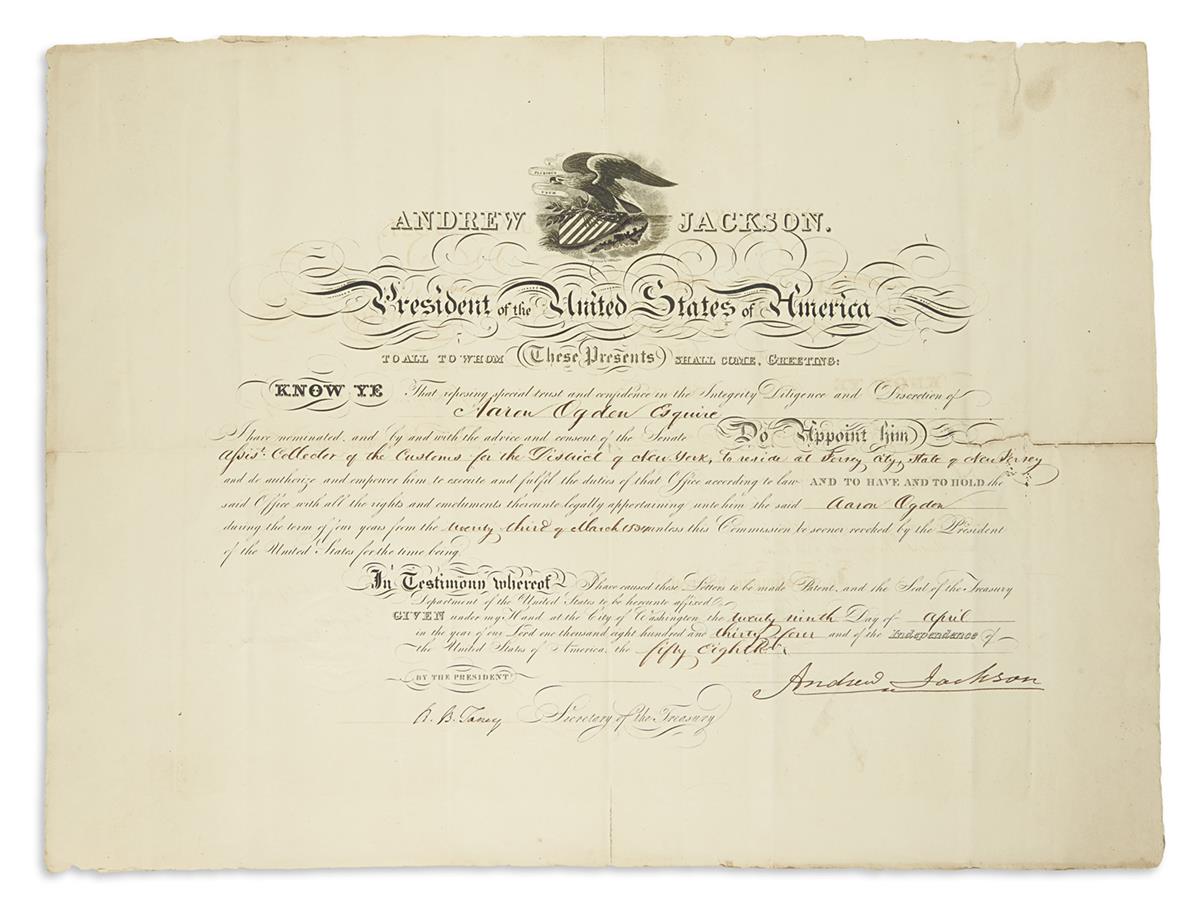 E PLURIBUS
UNUM
ANDREW JACKSON.
President of the United States of America
TO ALL TO WHOM These Presents SHALL COME, GREETING:
KNOW YE That reposing special trust and confidence in the Integrity Diligence and Discretion of
Aaron Ogden Esquire
I have nominated, and by and with the advice and consent of the Senate Do Appoint him
Assist. Collector of the Customs for the District of New York, to reside at Jersey City, State of New Jersey
and do authorize and empower him to execute and fulfil the duties of that Office according to law AND TO HAVE AND TO HOLD the
said Office with all the rights and emoluments thereunto legally appertaining unto him the said Aaron Ogden
during the term of four years from the twenty third of March 1834 unless this Commission be sooner revoked by the President
of the United States for the time being.
In Testimony whereof I have caused these Letters to be made Patent, and the Seal of the Treasury
Department of the United States to be hereunto affixed.
GIVEN under my Hand at the City of Washington the twenty ninth Day of April
in the year of our Lord one thousand eight hundred and thirty four and of the Independence of
the United States of America, the fifty eighth.
BY THE PRESIDENT Andrew Jackson
R. B. Taney Secretary of the Treasury